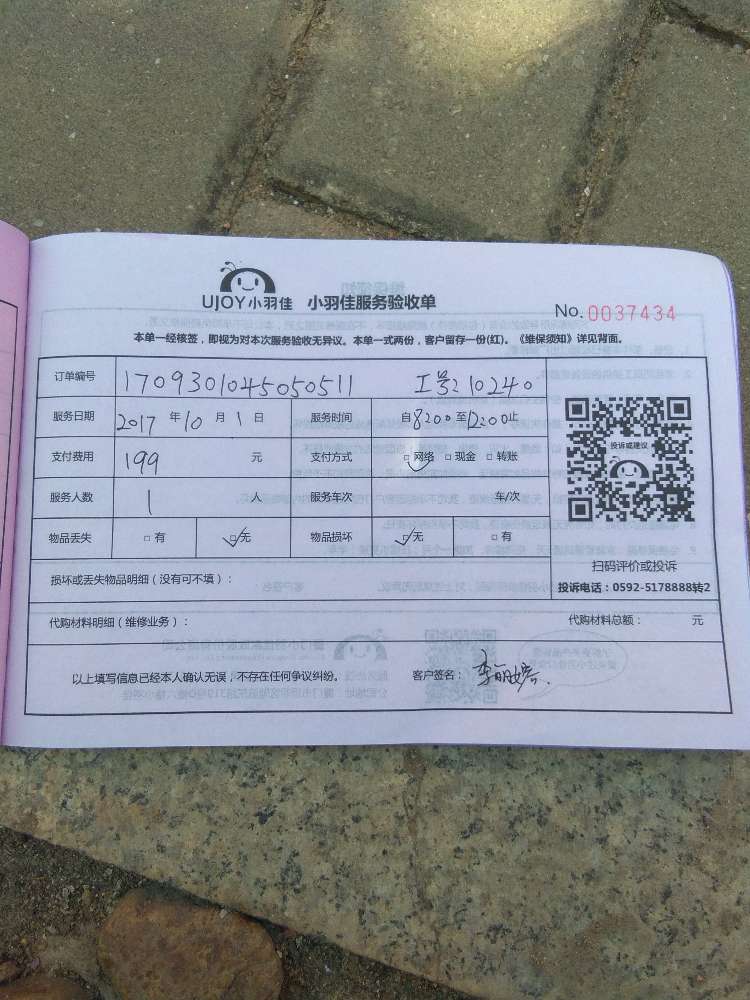 UJOY小羽佳 小羽佳服务验收单
No. 0037434
本单一经核签，即视为对本次服务验收无异议。本单一式两份，客户留存一份(红)。《维保须知》详见背面。
订单编号 1709301045050511 工号:10240
服务日期 2017 年 10 月 1 日 服务时间 自8:00至12:00止
支付费用 199 元 支付方式 □网络 □现金 □转账
投诉或建议
服务人数 1 人 服务车次 车/次
物品丢失 □有 □无 物品损坏 □无 □有
扫码评价或投诉
投诉电话：0592-5178888转2
损坏或丢失物品明细（没有可不填）：
代购材料明细（维修业务）： 代购材料总额： 元
以上填写信息已经本人确认无误，不存在任何争议纠纷。 客户签名：李丽婷